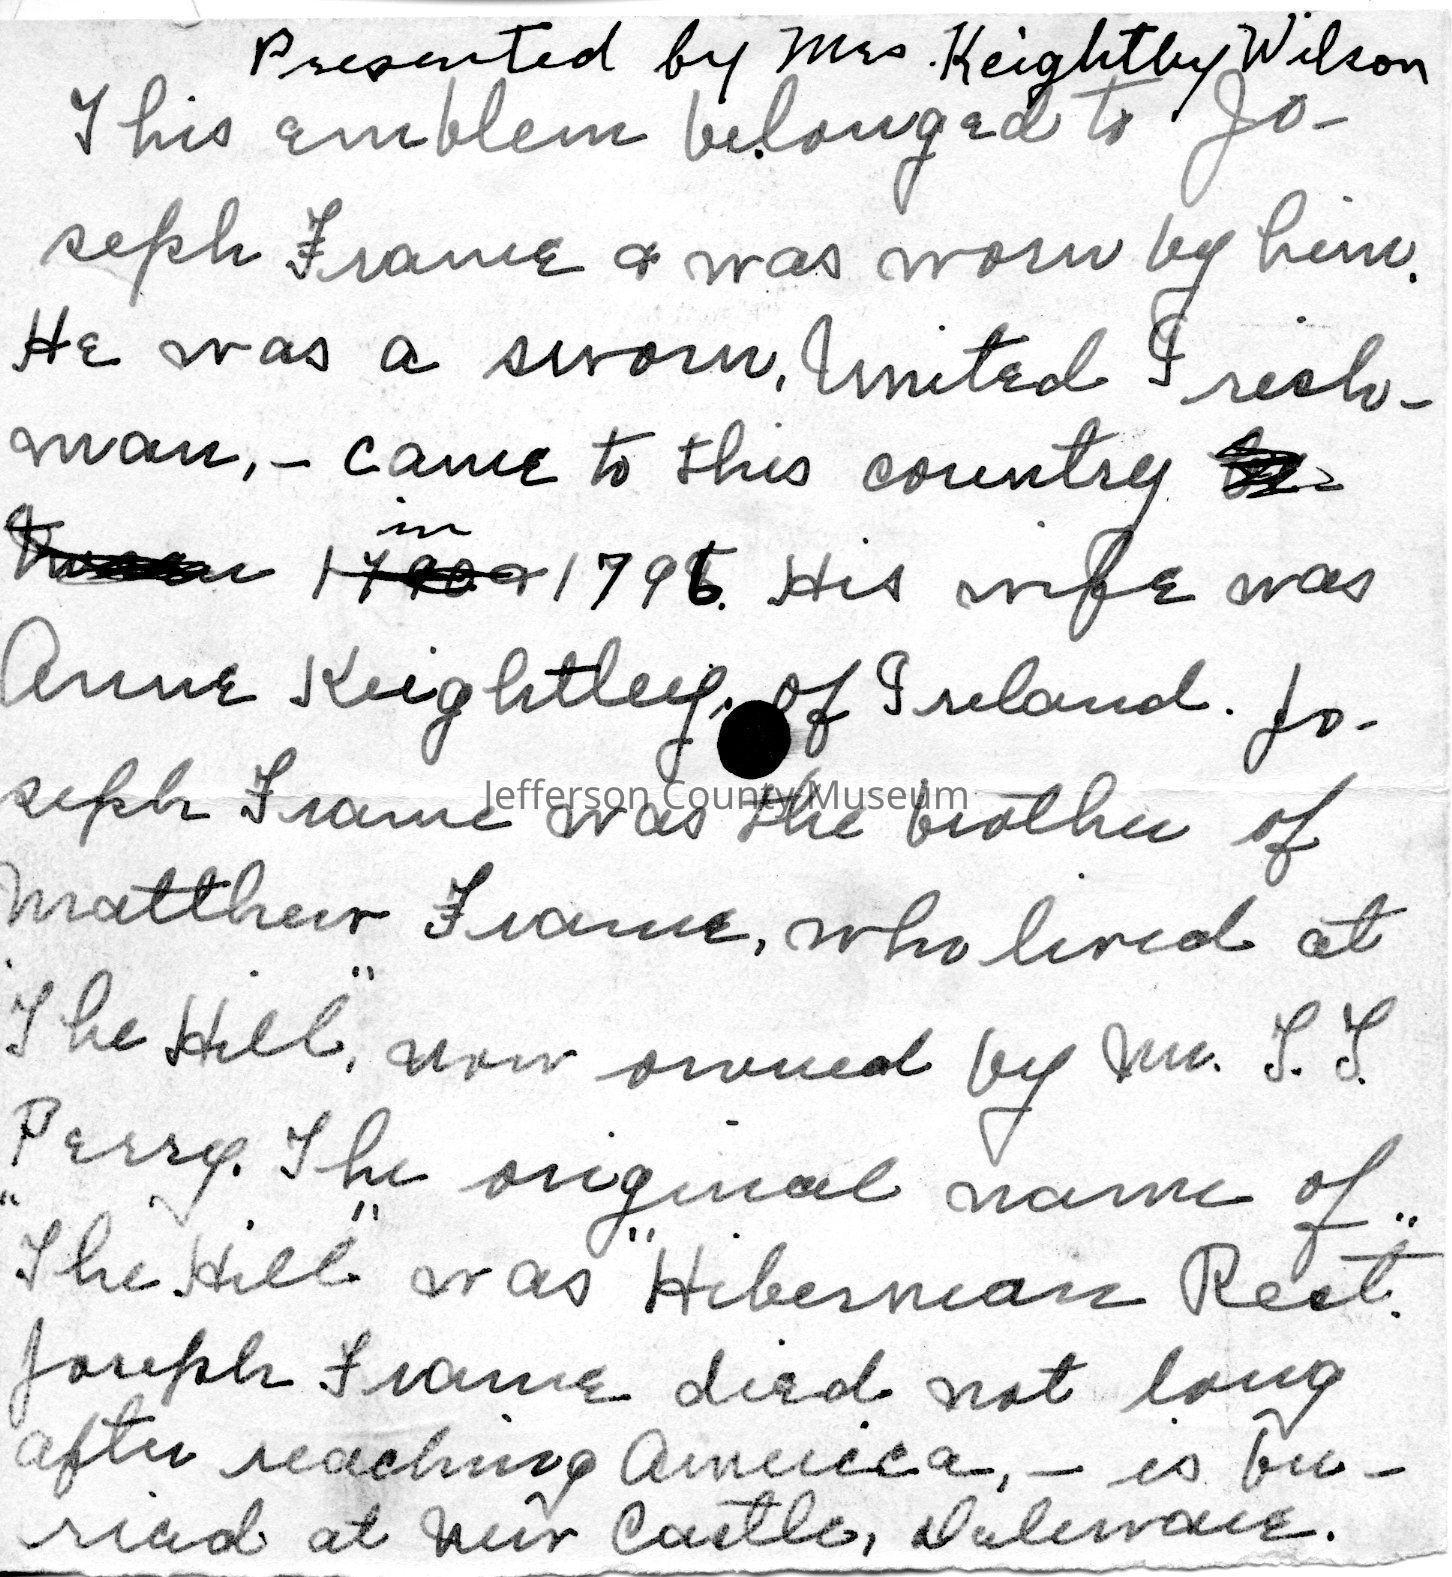 Presented by Mrs. Keightley Wilson
This emblem belonged to Jo-
seph Frame & was worn by him.
He was a sworn, United Irish-
man, - came to this country
in
1790 & 1795. His wife was
Anne Keightley, of Ireland. Jo-
seph Frame was the brother of
Jefferson County Museum
Matthew Frame, who lived at
"The Hill", now owned by Mr. T. T.
Perry. The original name of
"The Hill" was "Hibernian Rest."
Joseph Frame died not long
after reaching America, - is bu-
ried at New Castle, Delaware.